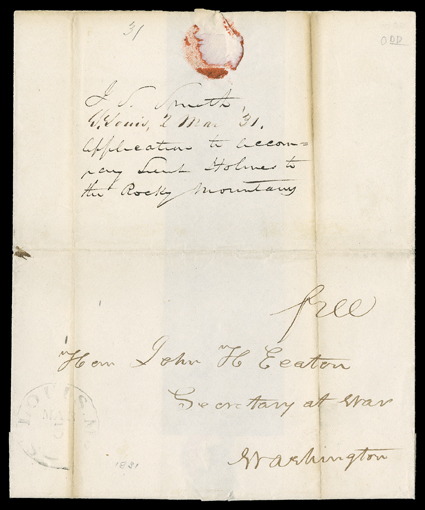 31
J. S. Smith,
St. Louis, 2 Mar 31.
Application to accom=
pany Lieut Holmes to
the Rocky Mountains
free
Hon John H Eeaton
Secretary at War
Washington
ST LOUIS
MAR
1831